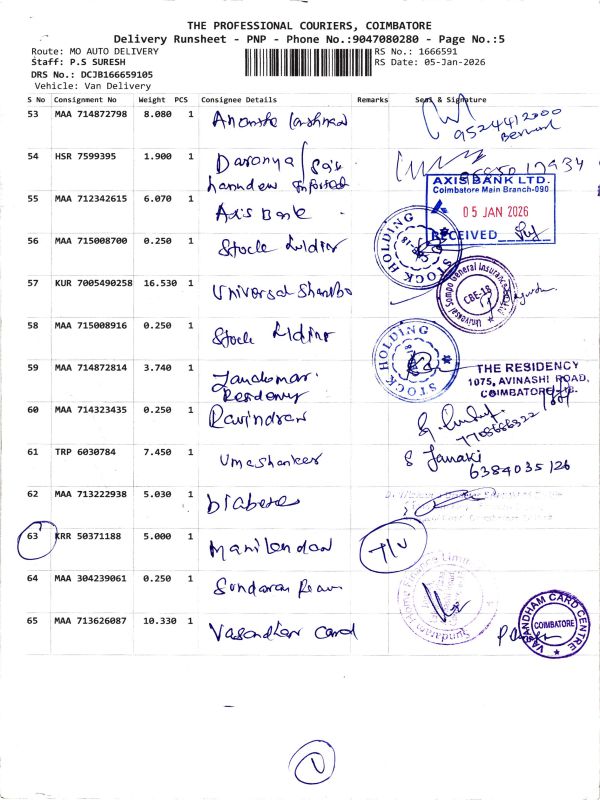 THE PROFESSIONAL COURIERS, COIMBATORE
Delivery Runsheet - PNP - Phone No.:9047080280 - Page No.:5
Route: MO AUTO DELIVERY
RS No.: 1666591
Staff: P.S SURESH
RS Date: 05-Jan-2026
DRS No.: DCJB166659105
Vehicle: Van Delivery
S No Consignment No Weight PCS Consignee Details Remarks Seal & Signature
53 MAA 714872798 8.080 1
9524412000
54 HSR 7599395 1.900 1
55 MAA 712342615 6.070 1 Axis Bank
AXIS BANK LTD.
Coimbatore Main Branch-090
05 JAN 2026
RECEIVED
56 MAA 715008700 0.250 1 Stock Holding
STOCK HOLDING
57 KUR 7005490258 16.530 1 Universal Shambo
Universal Sompo General Insurance
CBE-18
58 MAA 715008916 0.250 1 Stock Holding
STOCK HOLDING
59 MAA 714872814 3.740 1
Residency
THE RESIDENCY
1075, AVINASHI ROAD,
COIMBATORE
60 MAA 714323435 0.250 1 Ravindran
7708686322
61 TRP 6030784 7.450 1 Umashanker
S Janaki
6384035126
62 MAA 713222938 5.030 1 Diabetes
63 KRR 50371188 5.000 1 Manilendan
64 MAA 304239061 0.250 1 Sundaram
65 MAA 713626087 10.330 1 Vasandham Card
VASANDHAM CARD CENTRE
COIMBATORE